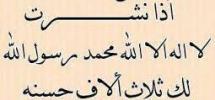 اذا نشـــــرت
لا اله الا الله محمد رسول الله
لك ثلاث ألاف حسنه